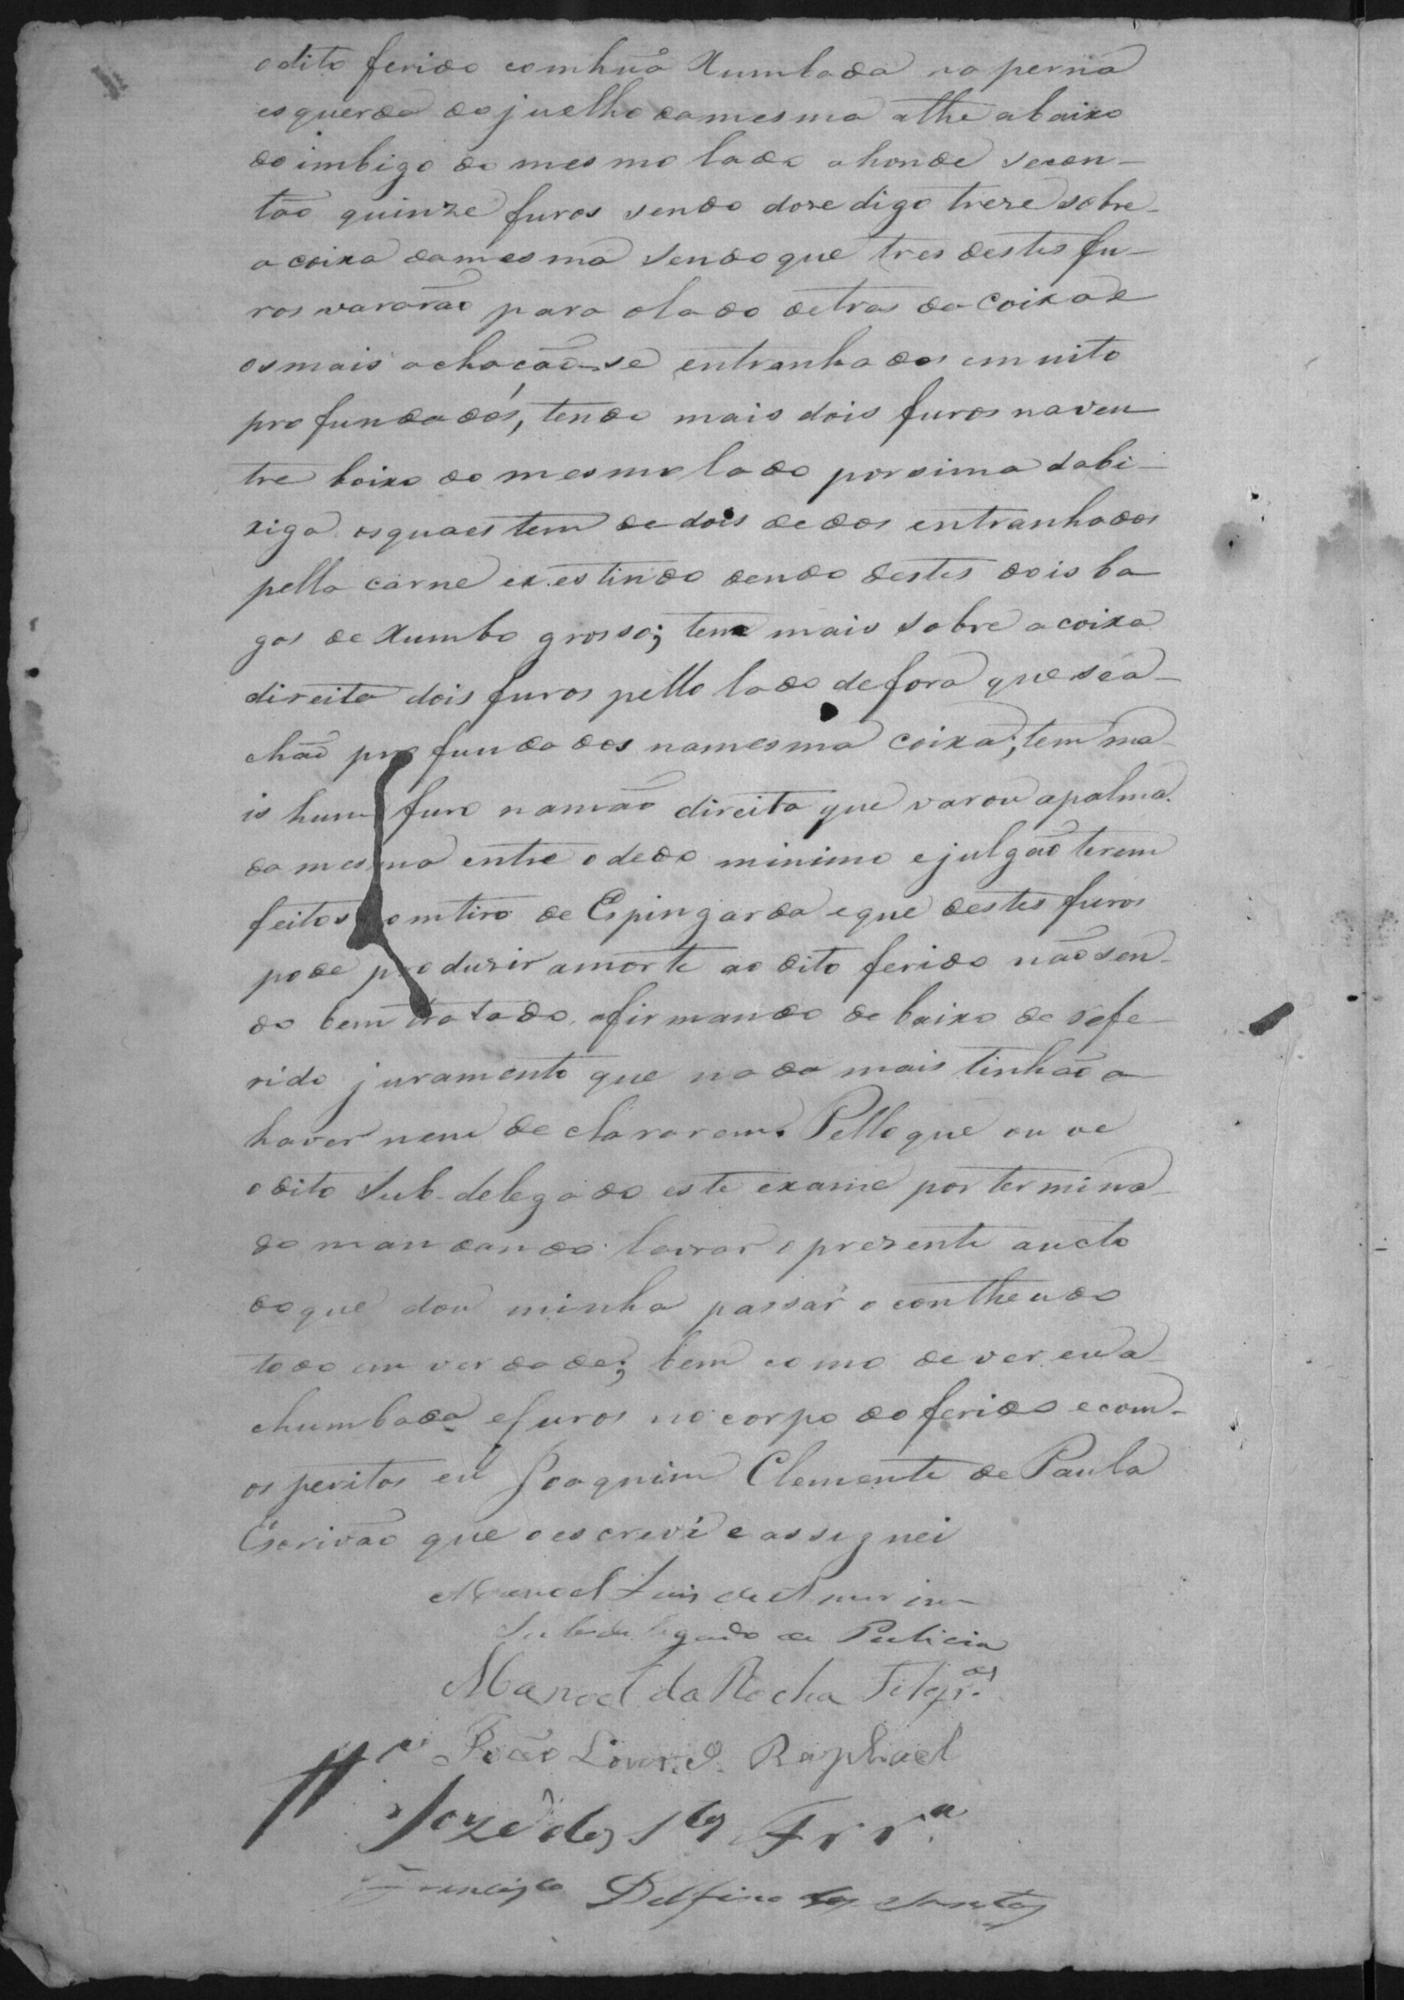 odito ferido comhuã Xumbada na perna
esquerda do juelho damesma athe abaixo
do imbigo do mesmo lado ahonde secon-
tão quinze furos sendo doze digo treze sobre
a coixa damesma sendo que tres destes fu-
ros vararão para olado detras da coixa e
osmais achacão-se entranhados emuito
profundados, tendo mais dois furos naven
tre baixo do mesmo lado porsima dabi-
xiga osquaes tem de dois dedos entranhados
pella carne existindo dendo destes dois ba
gos de Xumbo grosso; tem mais sobre acoixa
direita dois furos pello lado defora que sea-
chão profundados namesma coixa; tem ma
is hum furo namão direita que varou apalma
da mesma entre odedo minimo ejulgão terem
feitos comtiro de Espingarda eque destes furos
pode produzir amorte ao dito ferido não sen-
do bem tratado, afirmando debaixo do refe
rido juramento que nada mais tinhão a
haver nem declararem. Pello que ouve
odito Sub-delegado este exame por termina
do mandando lavrar o prezente aucto
doque dou minha passár o contheudo
todo em verdade; bem como de ver eu a
chumbada efuros no corpo do ferido ecom-
os peritos eu Joaquim Clemente de Paula
Escrivão que o escreví e assignei
Manoel Luis de Amorim
Subdelegado de Pulicia
Manoel da Rocha
João Raphael
Joze dos Stos Frr.ª
Francisco Delfino dos Santos